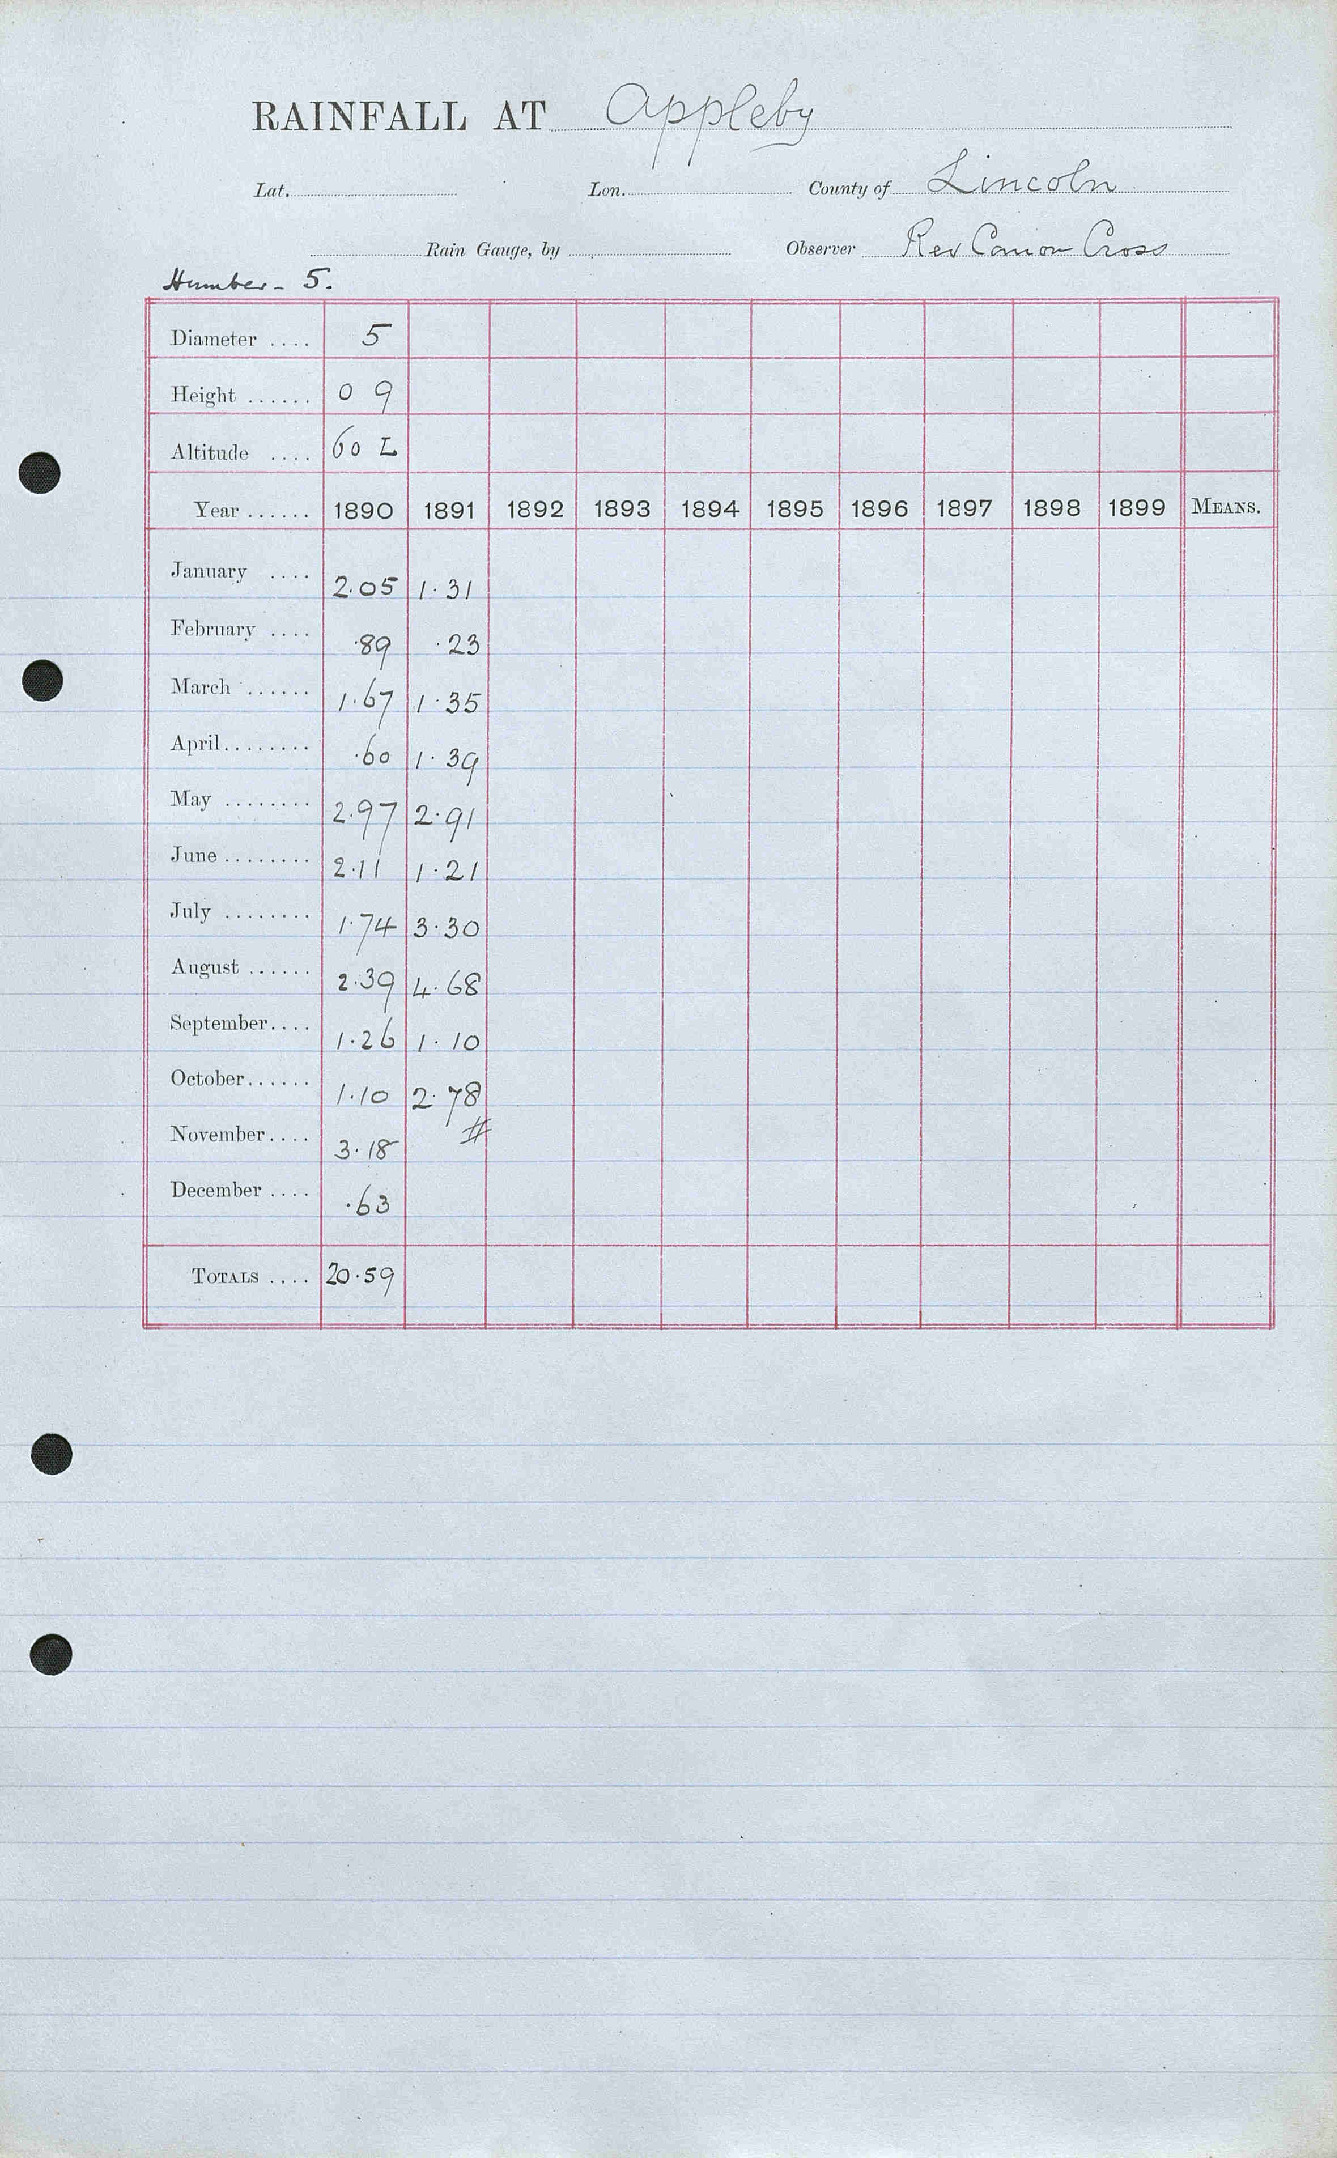 RAINFALL AT Appleby
Lat. Lon. County of Lincoln
Rain Gauge, by Observer Rev Canon Cross
Humber - 5.
Diameter .... 5
Height ...... 0 9
Altitude .... 60 L
Year ...... 1890 1891 1892 1893 1894 1895 1896 1897 1898 1899 MEANS.
January .... 2.05 1.31
February .... .89 .23
March ...... 1.67 1.35
April........ .60 1.39
May ........ 2.97 2.91
June ........ 2.11 1.21
July ........ 1.74 3.30
August ...... 2.39 4.68
September.... 1.26 1.10
October...... 1.10 2.78
November.... 3.18 #
December .... .63
TOTALS .... 20.59